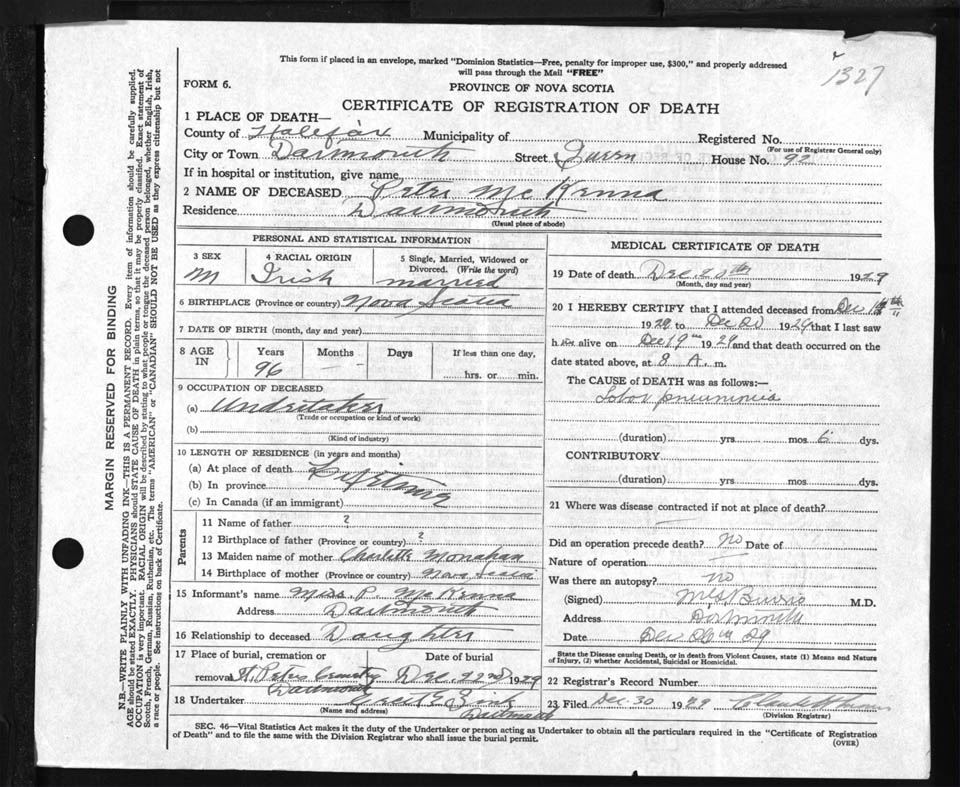 1327
This form if placed in an envelope, marked "Dominion Statistics—Free, penalty for improper use, $300," and properly addressed
will pass through the Mail "FREE"
FORM 6.
PROVINCE OF NOVA SCOTIA
CERTIFICATE OF REGISTRATION OF DEATH
1 PLACE OF DEATH—
County of Halifax Municipality of Registered No.
(For use of Registrar General only)
City or Town Dartmouth Street Queen House No. 92
If in hospital or institution, give name
2 NAME OF DECEASED Peter McKenna
Residence Dartmouth
(Usual place of abode)
PERSONAL AND STATISTICAL INFORMATION
3 SEX 4 RACIAL ORIGIN 5 Single, Married, Widowed or
Divorced. (Write the word)
M Irish married
6 BIRTHPLACE (Province or country) Nova Scotia
7 DATE OF BIRTH (month, day and year)
8 AGE IN Years Months Days If less than one day,
96 hrs. or min.
9 OCCUPATION OF DECEASED
(a) Undertaker
(Trade or occupation or kind of work)
(b)
(Kind of industry)
10 LENGTH OF RESIDENCE (in years and months)
(a) At place of death
(b) In province Lifetime
(c) In Canada (if an immigrant)
Parents
11 Name of father ?
12 Birthplace of father (Province or country) ?
13 Maiden name of mother Charlotte Monahan
14 Birthplace of mother (Province or country) Nova Scotia
15 Informant's name Miss. P. McKenna
Address Dartmouth
16 Relationship to deceased Daughter
17 Place of burial, cremation or Date of burial
removal St. Peters Cemetery Dec. 22nd 1929
Dartmouth
18 Undertaker
(Name and address) Dartmouth
MEDICAL CERTIFICATE OF DEATH
19 Date of death Dec. 20th 1929
(Month, day and year)
20 I HEREBY CERTIFY that I attended deceased from Dec
1929 to Dec 20 1929 that I last saw
him alive on Dec 19th 1929 and that death occurred on the
date stated above, at 8 A. m.
The CAUSE of DEATH was as follows:—
Lobar pneumonia
(duration) yrs mos 6 dys.
CONTRIBUTORY
(duration) yrs. mos. dys.
21 Where was disease contracted if not at place of death?
Did an operation precede death? no Date of
Nature of operation
Was there an autopsy? no
(Signed) M.D.
Address Dartmouth
Date Dec 26th 29
State the Disease causing Death, or in death from Violent Causes, state (1) Means and Nature
of Injury, (2) whether Accidental, Suicidal or Homicidal.
22 Registered Record Number
23 Filed Dec. 30 1929
(Division Registrar)
SEC. 46—Vital Statistics Act makes it the duty of the Undertaker or person acting as Undertaker to obtain all the particulars required in the "Certificate of Registration
of Death" and to file the same with the Division Registrar who shall issue the burial permit.
(OVER)
MARGIN RESERVED FOR BINDING
N.B.—WRITE PLAINLY WITH UNFADING INK—THIS IS A PERMANENT RECORD. Every item of information should be carefully supplied.
AGE should be stated EXACTLY. PHYSICIANS should STATE CAUSE OF DEATH in plain terms, so that it may be properly classified. Exact statement of
OCCUPATION is very important. RACIAL ORIGIN will be described by stating to what people or tongue the deceased person belonged, whether English, Irish,
Scotch, French, German, Russian, Ruthenian, etc. The terms "AMERICAN" or "CANADIAN" SHOULD NOT BE USED as they express citizenship but not
a race or people. See instructions on back of Certificate.